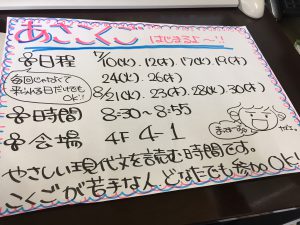 あさこくご はじまるよ〜!!
日程 7/10(火)、12(木)、17(火)、19(木)
24(火)、26(木)
8/21(火)、23(木)、28(火)、30(木)
全回じゃなくて
来れる日だけでも
OK!
時間 8:30〜8:55
会場 4F 4-1
まってま〜す
やさしい現代文を読む時間です。
こくごが苦手な人、どなたでも参加OK!